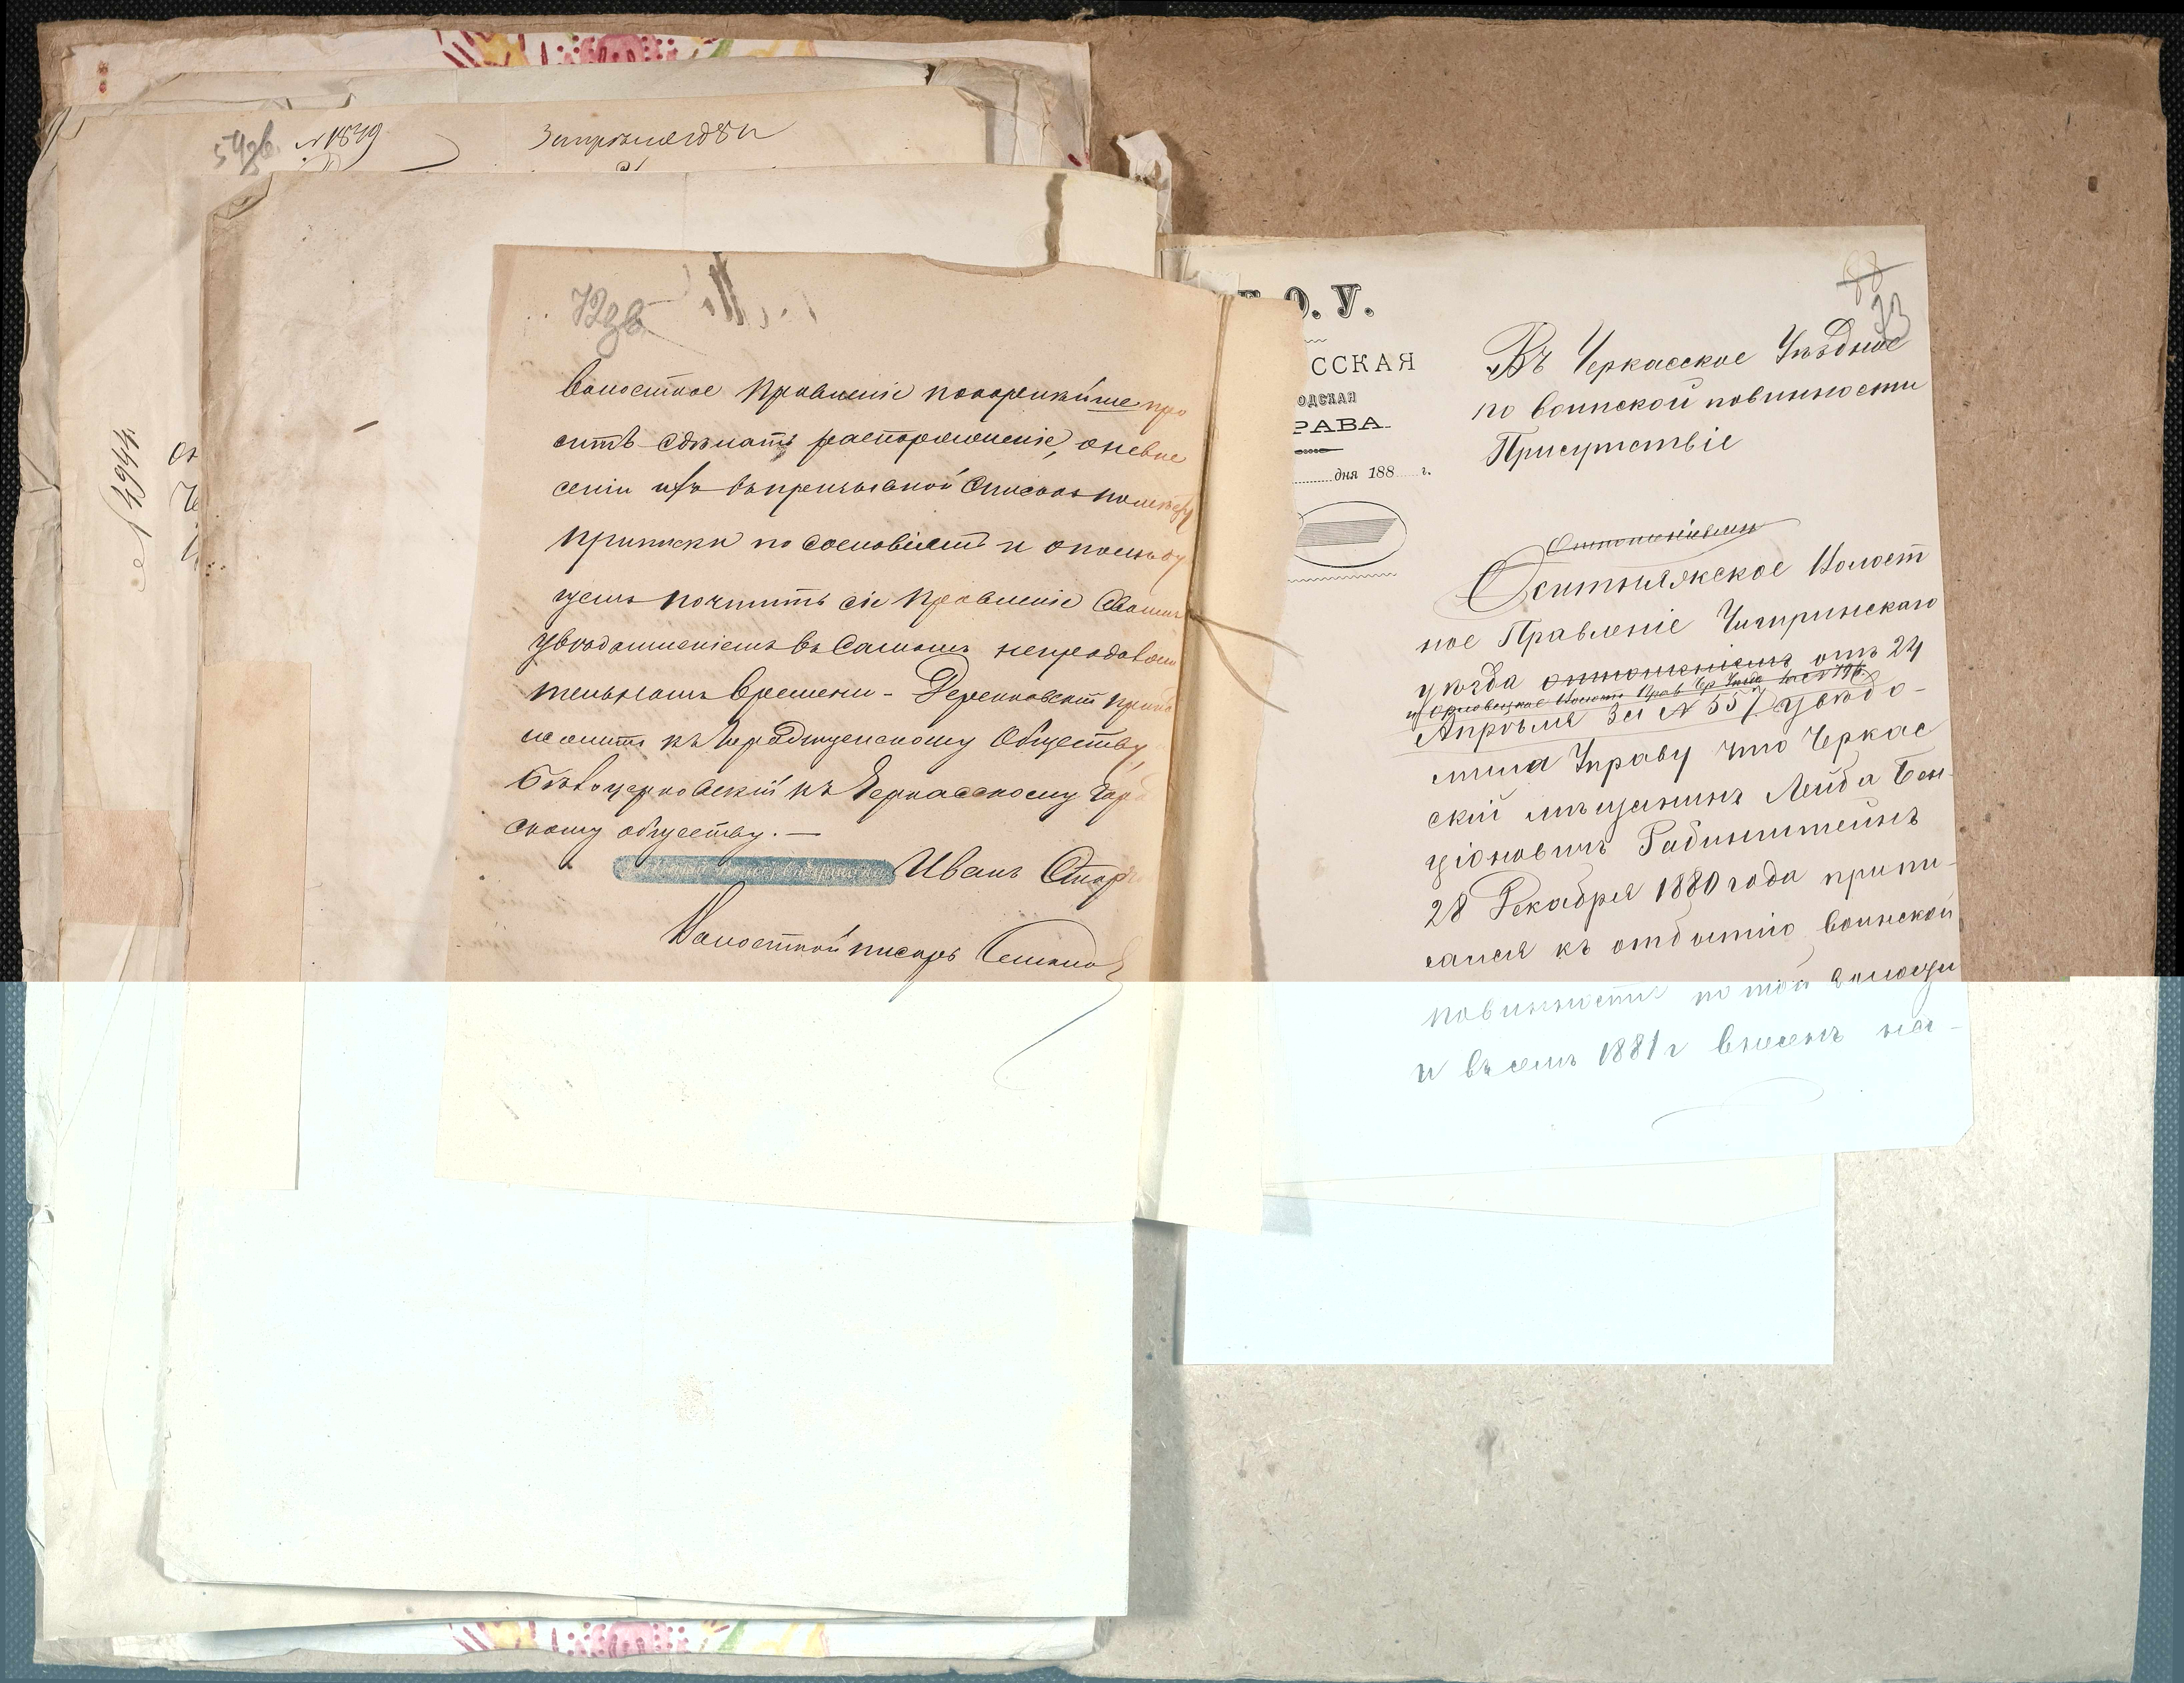 54зв. № 1849
№ 4944
72зв
волостное Правленіе покорнѣйше про
ситъ сдѣлать распоряженіе, о невне
сеніи ихъ въ призывной Списокъ по мѣсту
приписки по сословіямъ и о послѣдую
щемъ почтить сіе Правленіе Своимъ
увѣдомленіемъ въ Самомъ непродолжи
тельномъ времени - Деренковскій
къ Обществу,
Бѣлоцерковскій къ Черкасскому Город
скому обществу. —
Иванъ
Волостной писарь
О. У.
ССКАЯ
ОДСКАЯ
РАВА
дня 188 г.
88
73
Въ Черкасское Уѣздное
по воинской повинности
Присутствіе
Отношеніемъ
Оситняжское Волост
ное Правленіе Чигиринскаго
уѣзда отношеніемъ отъ 24
Апрѣля За № 557 увѣдо-
мила Управу что Черкас
скій мѣщанинъ Лейба Бен-
ціоновичъ Рабинштейнъ
28 Декабря 1880 года припи-
сался къ отбытію воинской
повинности по той волости
и въ семъ 1881 г внесенъ на-